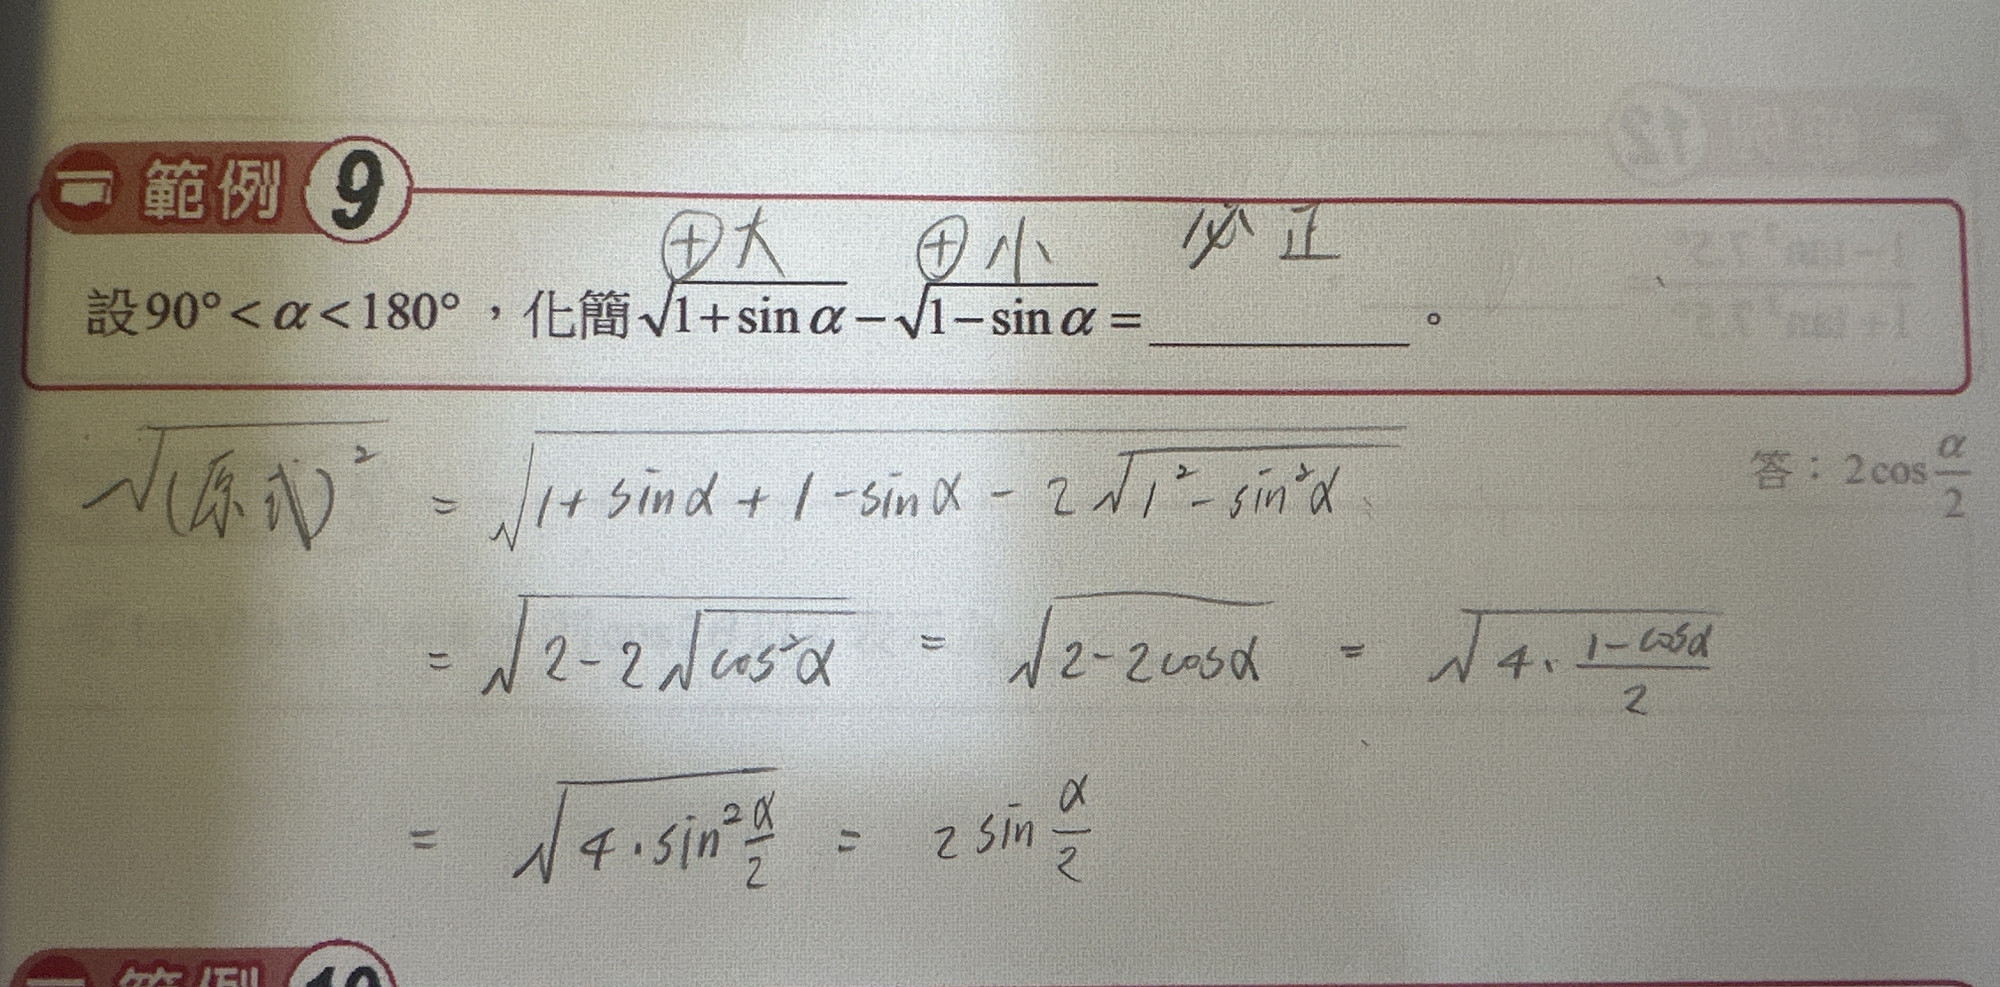 範例 9
⊕大 ⊕小 必正
設90°<α<180°，化簡√(1+sin α)−√(1−sin α)=________。
答：2cos α/2
√(原式)² = √(1+sinα+1-sinα-2√(1²-sin²α))
= √(2-2√(cos²α)) = √(2-2cosα) = √(4·(1-cosα)/2)
= √(4·sin²α/2) = 2 sin α/2
範例 10